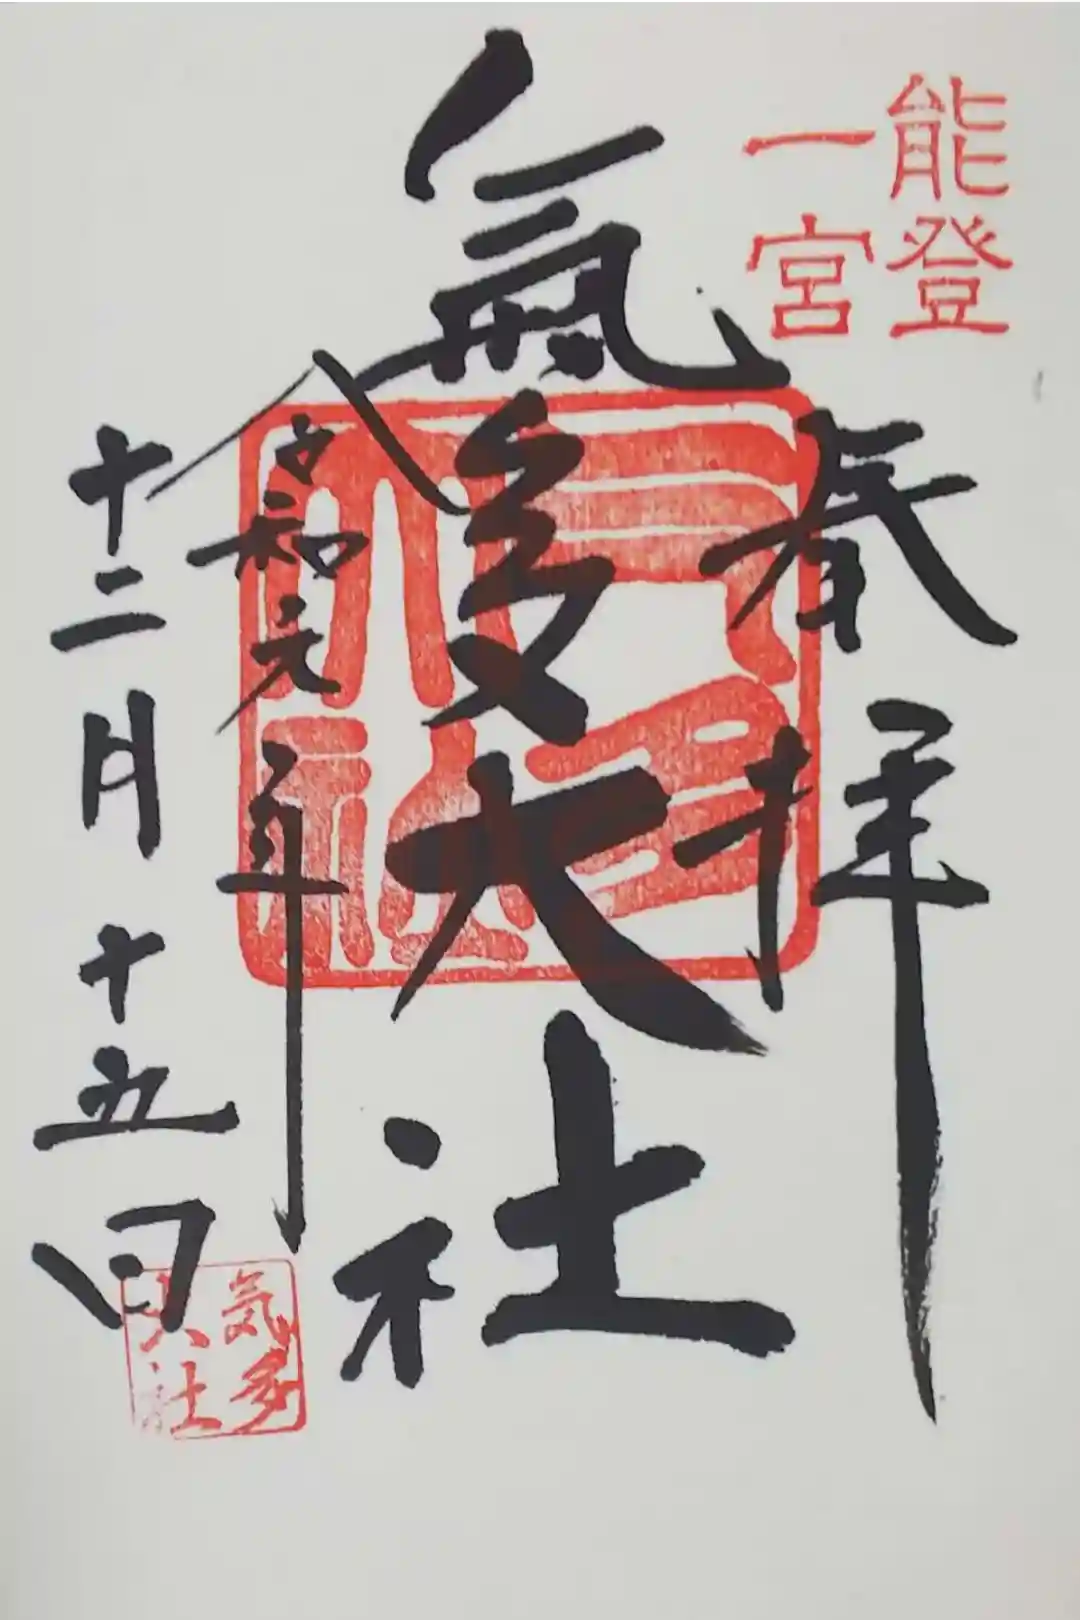 能登
一宮
奉拝
氣多大社
令和元年
十二月十五日
気多
大社
気多
大社